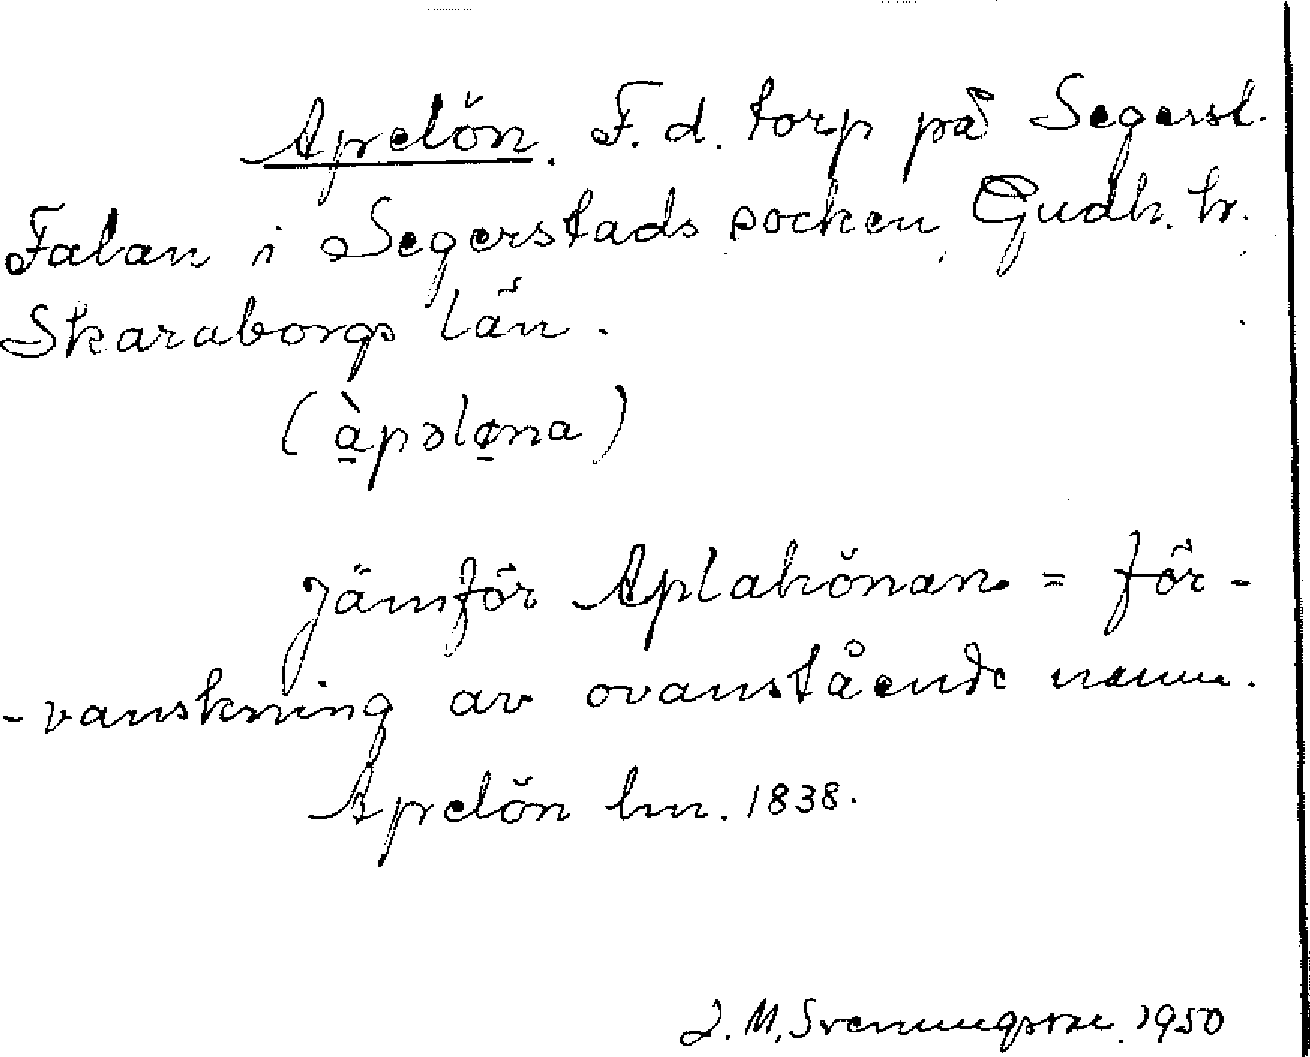 Apelön. F. d. torp på Segerst.
Falan i Segerstads socken, Gudh. hr.
Skaraborgs län.
(àpəløna)
Jämför Aplakönan = för-
-vanskning av ovanstående namn.
Apelön hm. 1838.
J. M. Svenningsson. 1950